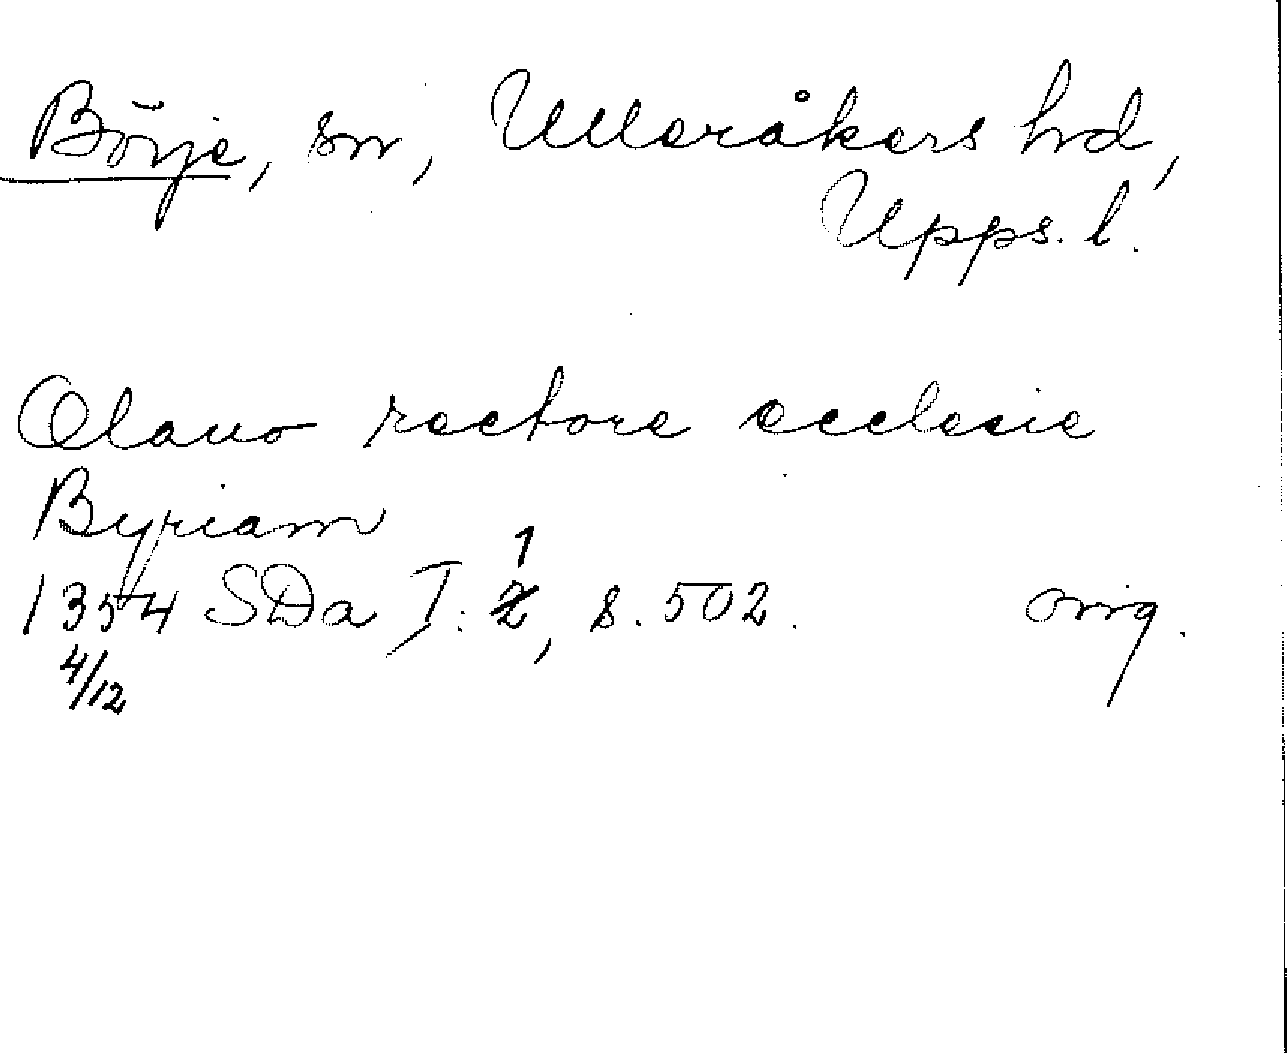 Börje, sn, Ulleråkers hd,
Upps. l.
Olauo rectore ecclesie
Byriam
1
1354 SDa I: 2, s. 502. orig.
4/12